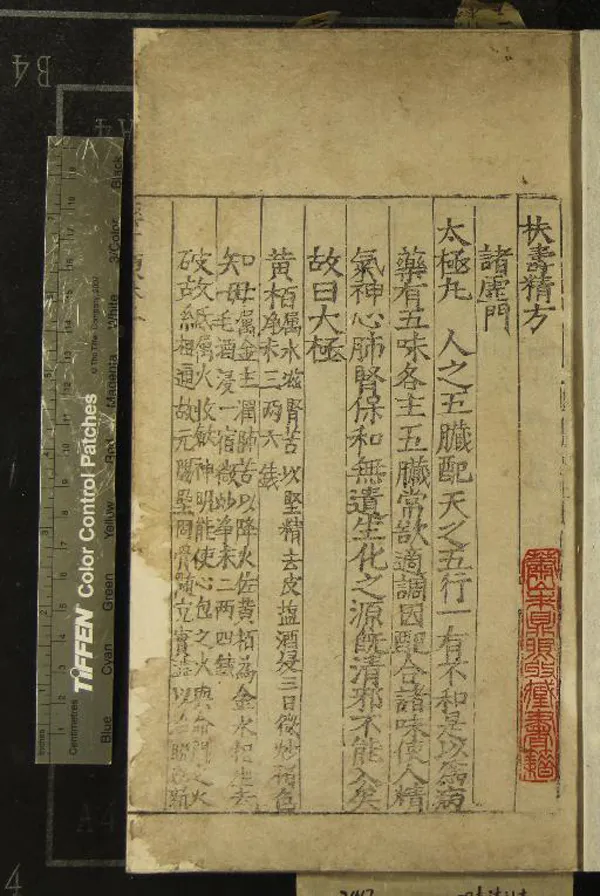 扶壽精方
諸虛門
太極丸　人之五臟配天之五行一有不和是以為病
藥有五味各主五臟常欲適調因配合諸味使人精
氣神心肺腎保和無遺生化之源旣清邪不能入矣
故曰太極
黄栢屬水滋腎苦以堅精去皮塩酒浸三日微炒褐色
淨末三兩六錢
知母屬金主潤肺苦以降火佐黄栢為金水相生去
毛酒浸一宿微炒淨末二兩四錢
破故紙屬火收歛神明能使心包之火與命門之火
相通故元陽堅固骨髓充實盖以
B4
A4
TIFFEN Color Control Patches
© The Tiffen Company, 2007
Inches
Centimetres
Blue Cyan Green Yellow Red Magenta White 3/Color Black